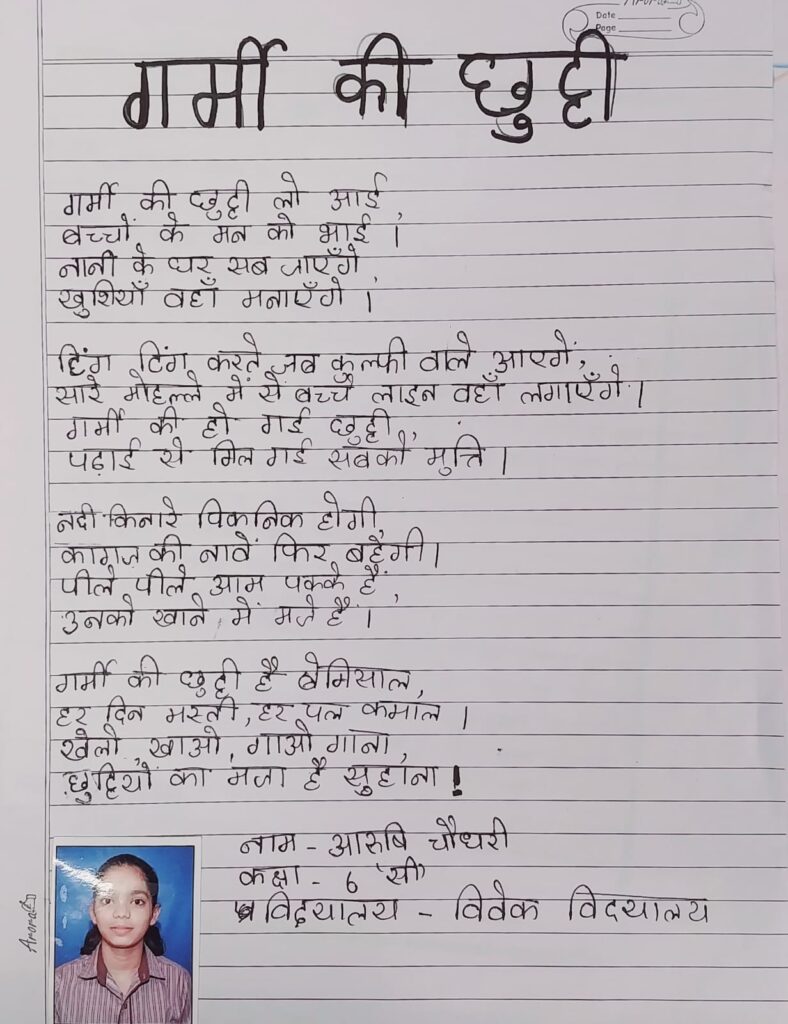 Arora
Date
Page
गर्मी की छुट्टी
गर्मी की छुट्टी लो आई,
बच्चों के मन को भाई।
नानी के घर सब जाएँगे,
खुशियाँ वहाँ मनाएँगे।
टिंग टिंग करते जब कुल्फी वाले आएगें,
सारे मोहल्ले में से बच्चे लाइन वहाँ लगाएँगे।
गर्मी की हो गई छुट्टी,
पढ़ाई से मिल गई सबको मुत्ति।
नदी किनारे पिकनिक होगी,
कागज़ की नावें फिर बहेगी।
पीले पीले आम पक्के हैं,
उनको खाने में मजे हैं।
गर्मी की छुट्टी है बेमिसाल,
हर दिन मस्ती, हर पल कमाल।
खेलो, खाओ, गाओ गाना,
छुट्टियों का मजा है सुहाना!
नाम - आरुषि चौधरी
कक्षा - 6 'सी'
विद्यालय - विवेक विद्यालय
Arora